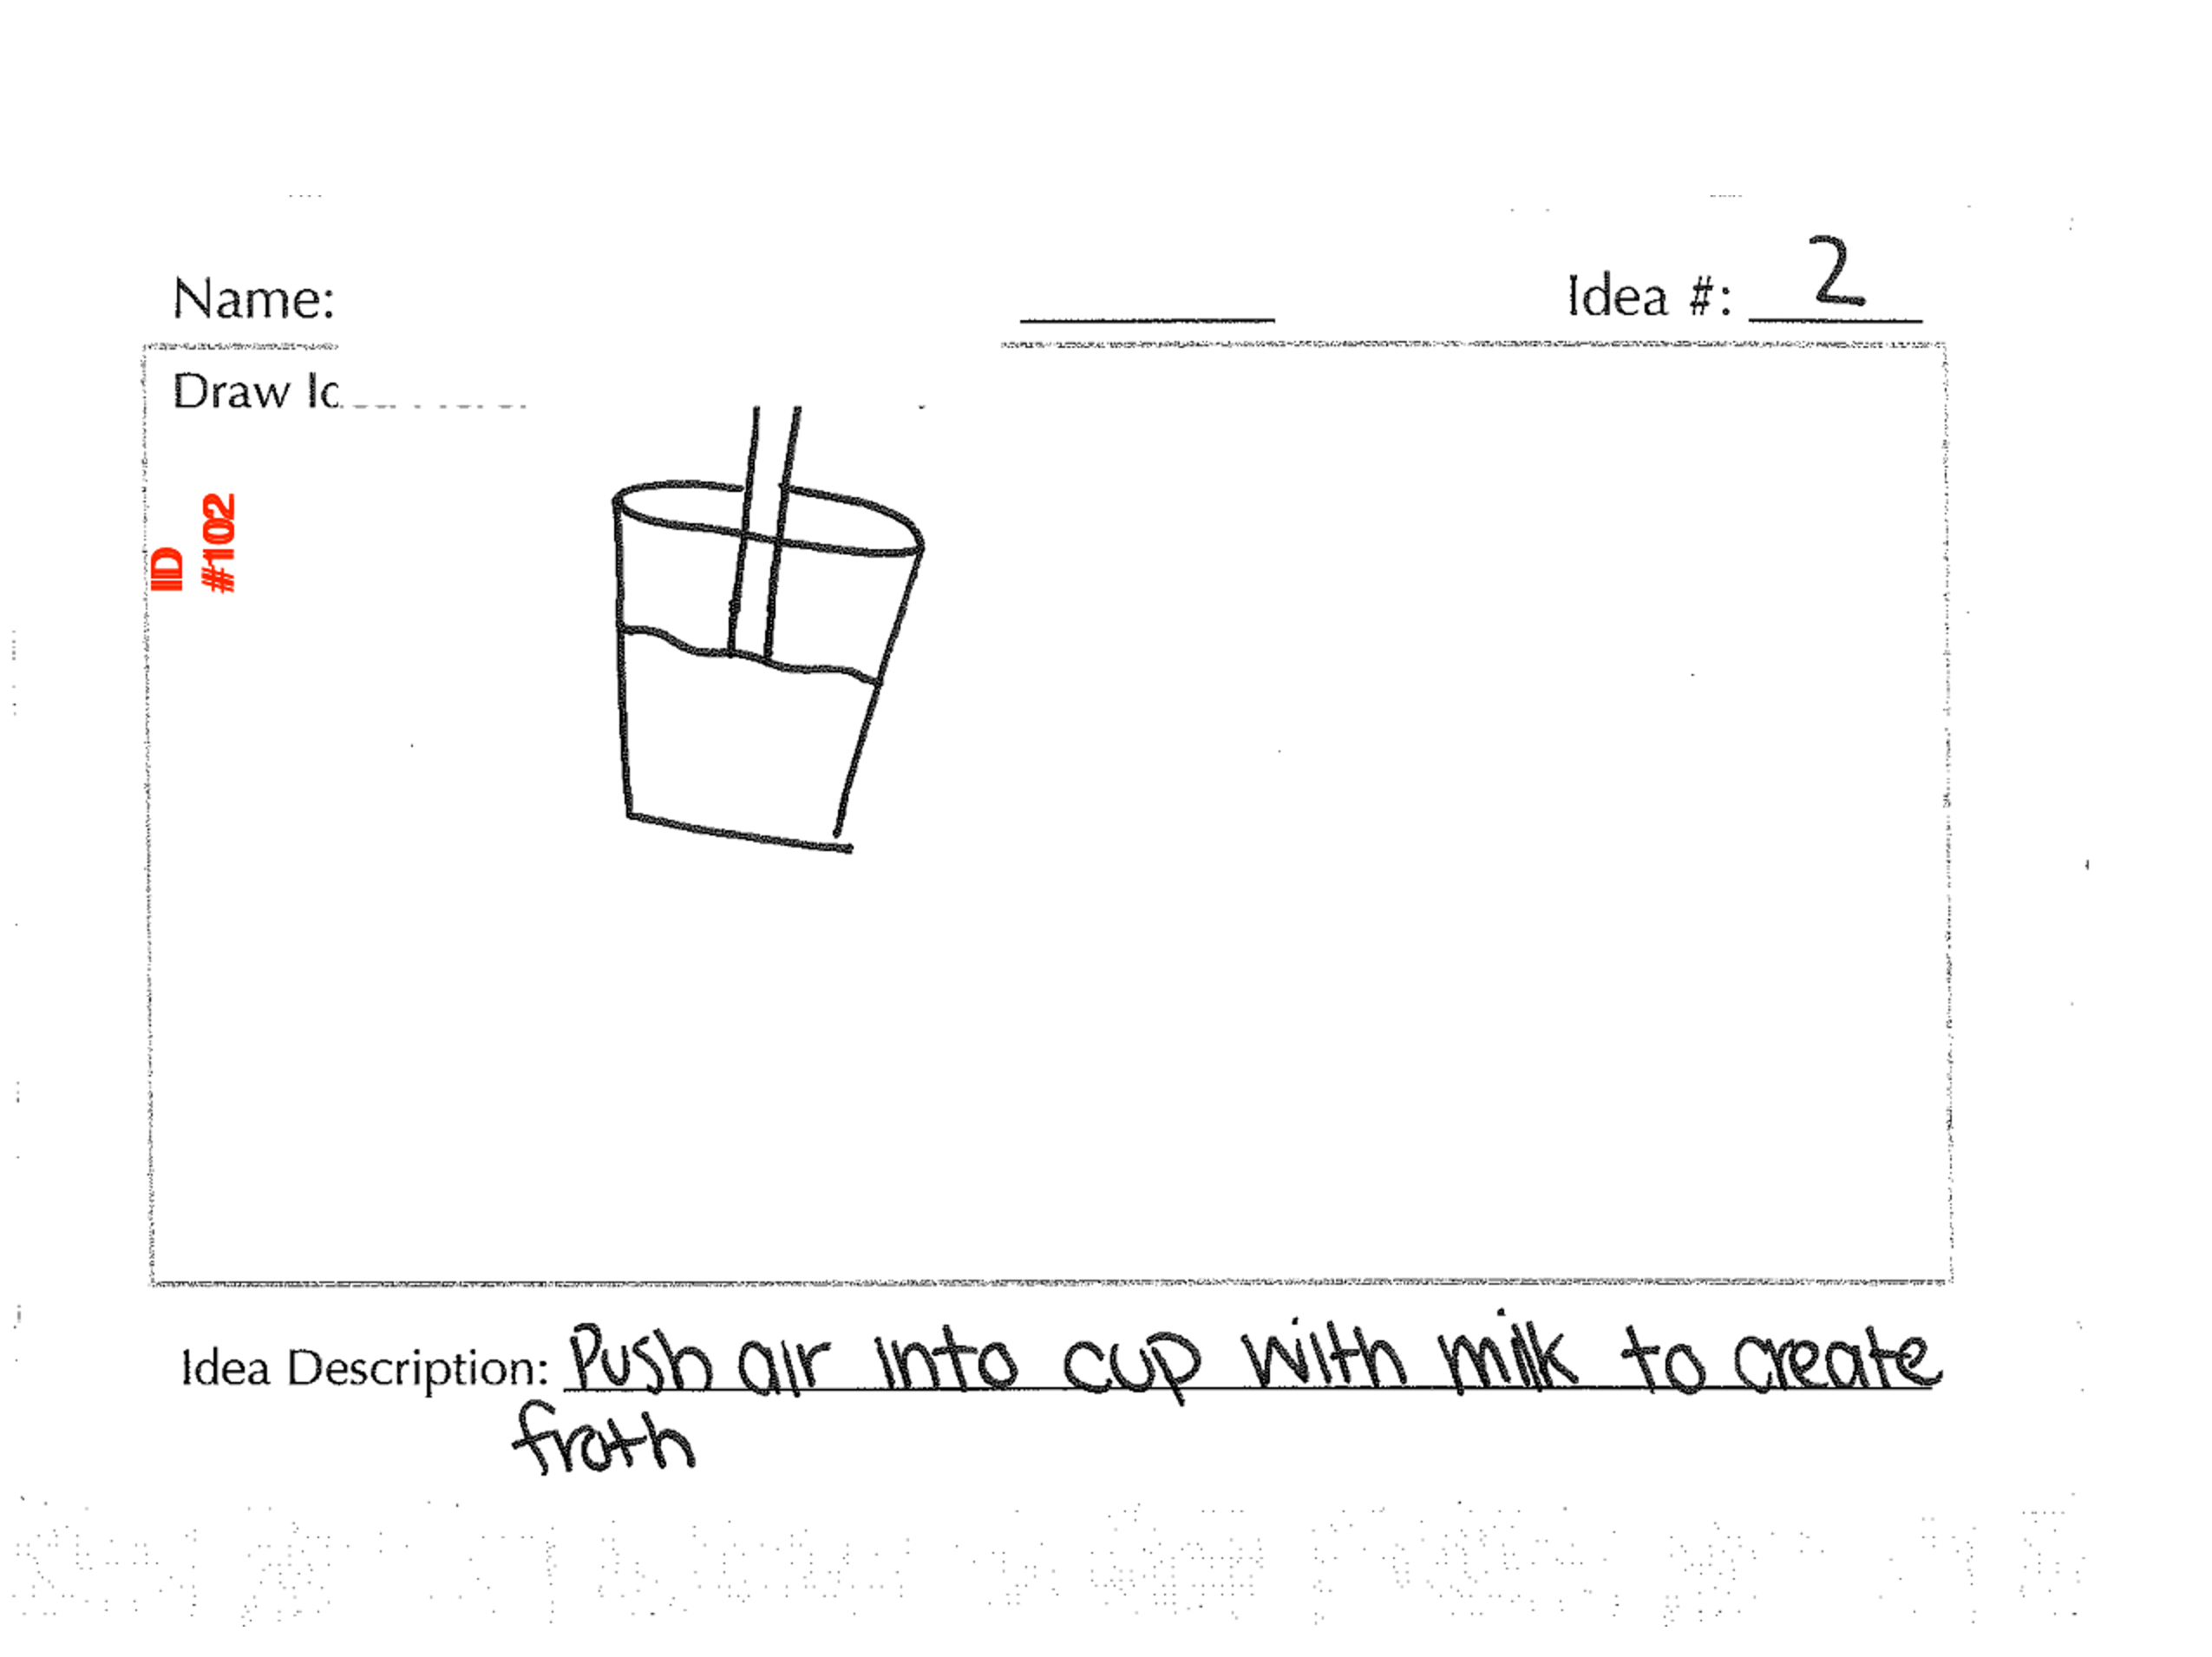 Name:
Idea #: 2
Draw
ID
#102
Idea Description: Push air into cup with milk to create
froth